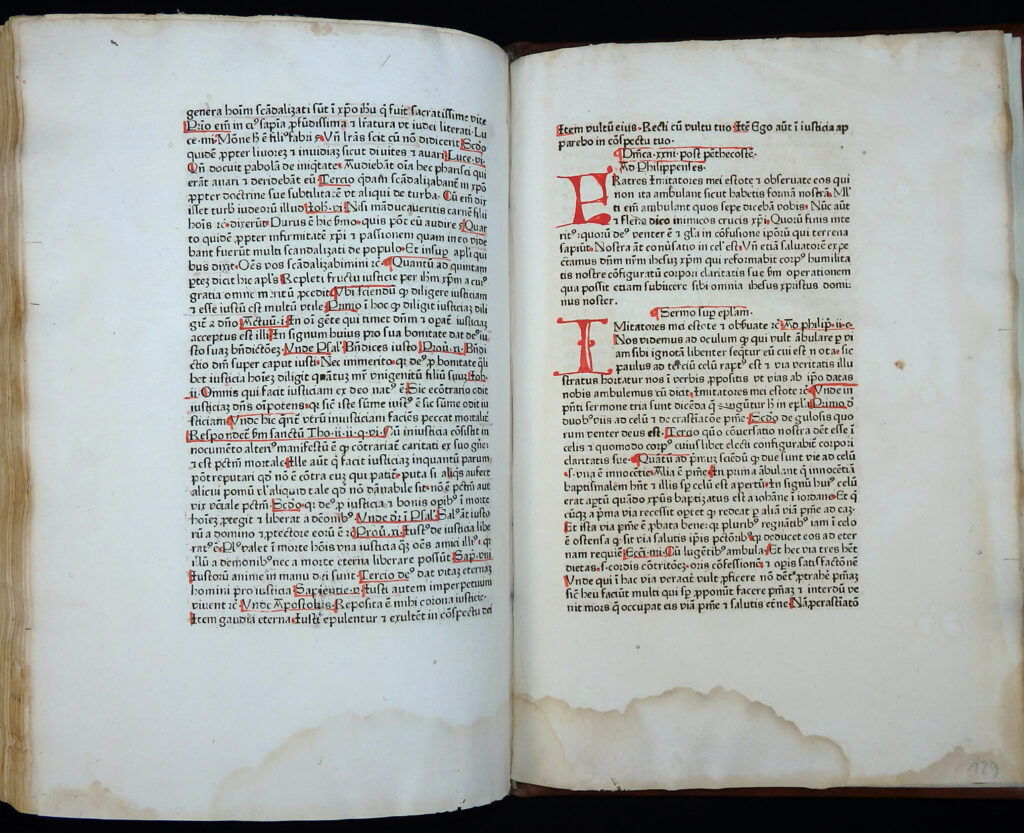 genera hoīm scādalizati sūt ī xp̄o ihū q̄ fuit sacratissime vite
Prīo em̄ in ei⁹ sapīa ꝓfūdissima ⁊ l̄ratura vt iudei literati. Lu
ce. iiii. Mōne h̄ ē fili⁹ fabri ⁊. Vn̄ l̄ras scit cū nō didicerit Scd̄o
quidē ꝓpter liuorē ⁊ inuidiā sicut diuites ⁊ auari Luce. vi.
Qn̄ docuit ꝑabolā de iniq̄tate. Audiebāt oīa hec pharisei qui
erāt auari ⁊ deridebāt eū Tercio qdam scādalizabant̄ in xp̄o
ꝓpter doctrine sue subtilitatē vt aliqui de turba. Cū em̄ dix
isset turb iudeorū illud Ioh. vi. Nisi māducaueritis carnē filii
hoīs rē. dixerūt. Durus ē hic s̄mo. quis pōt eū audire. Quar
to quidē ꝓpter infirmitatē xp̄i ⁊ passionem quam in eo vide
bant fuerūt multi scandalizati de populo. Et insuꝑ apl̄i qui
bus dixit. Oēs vos scādalizabimini rē. Quantū ad quintam
ꝑtez dicit hic apl̄s. Repleti fructu iusticie per ihm̄ xp̄m a cui⁹
gratia omne meritū ꝓcedit. Vbi sciendū ꝙ diligere iusticiam
⁊ esse iustū est multū vtile Primo ī hoc ꝙ diligit iusticiaz dili
git̄ a dn̄o Actuū. x. In oī gēte qui timet dn̄m ⁊ opat̄ iusticiaz
acceptus est illi. In signum huius pro sua bonitate dat de⁹ iu
sto suaz bn̄dictōez. Vnde Psal. Bn̄dices iusto Prou. x. Bn̄di
ctio dn̄i super caput iusti. Nec immerito. qꝛ de⁹ ꝓ bonitate q̄li
bet iusticia hoīez diligit q̄ātuz mr̄ vnigenitū filiū suuz Ioh.
ii. Omnis qui facit iusticiam ex deo nat⁹ ē. Sic ecōtrario odit
iusticiaz dn̄s oīpotens. qꝛ sic̄ iste sūme iust⁹ ē sic sūme odit in
iusticiam. Vnde hic querit̄ vtrū iniusticiam faciens peccat mortalit̄
Respondet̄ s̄m sanctū Tho. ii. ii. q. vi. Cū iniusticia cōsistat in
nocumēto alteri⁹ manifestū ē ꝙ cōtrariat̄ caritati ex suo gn̄e.
⁊ est pctm̄ mortale. Ille aūt q̄ facit iusticiaz inquantū parum
pōt reputari qd̄ nō ē cōtra eius qui patit̄. puta si aliq̄s aufert
alicui pomū vl̄ aliquid tale qd̄ nō dānabile sit. nō ē pctm̄ aut
vix veniale pctm̄ Scd̄o. qꝛ de⁹ ꝓ iusticia ⁊ bonis opib⁹ ī morte
hoīez ꝓtegit ⁊ liberat a demōib⁹. Vnde d̄r ī Psal. Sal⁹ āt iusto
rū a domino ⁊ ꝓtectore eorū ē rē Prou. xi. Iust⁹ de iusticia libe
rat⁹ ē. Pl⁹ valet ī morte hoīs vna iusticia q̄z oēs amici illi⁹. q̄
illū a demōib⁹ nec a morte eterna liberare possūt Sap. viii
Iustorū anime in manu dei sunt. Tercio de⁹ dat vitaz eternaz
homini pro iusticia Sapientie. v. Iusti autem imperpetuum
viuent rē. Vnde Apostolus. Reposita ē mihi corona iusticie.
Item gaudia eterna. Iusti epulentur ⁊ exultēt in cōspectu dei
Item vultū eius. Recti cū vultu tuo. Itē Ego aūt ī iusticia ap
parebo in cōspectu tuo.
Dn̄ica. xxiii. post pēthecostē.
Ad Philippenses.
FRatres Imitatores mei estote ⁊ obseruate eos qui
non ita ambulant sicut habetis formā nostrā. Ml̄
ti em̄ ambulant quos sepe dicebā vobis. Nūc aūt
⁊ flens dico inimicos crucis xp̄i. Quorū finis inte
rit⁹. quorū de⁹ venter ē ⁊ gl̄a in cōfusione ip̄orū qui terrena
sapiūt. Nostra āt cōuersatio in cel̄ est. Vn̄ etiā saluatorē expe
ctamus dn̄m nr̄m ihesuz xp̄m qui reformabit corp⁹ humilita
tis nostre cōfiguratū corpori claritatis sue s̄m operationem
qua possit etiam subiicere sibi omnia ihesus xp̄istus domi
nus noster.
Sermo suꝑ ep̄lam.
IMitatores mei estote ⁊ obseruate rē. Ad philip̄. iii. c.
Nos videmus ad oculum ꝙ qui vult ābulare ꝑ vi
am sibi ignotā libenter seq̄tur eū cui est nota. sic
paulus ad terciū celū rapt⁹ est ⁊ via veritatis illu
stratus hortatur nos ī verbis ꝓpositis vt vias ab ip̄o datas
nobis ambulemus cū dicit. Imitatores mei estote rē. Vnde in
pn̄ti sermone tria sunt dicēda q̄ tangūtur h̄ in ep̄la. Primo d̄
duob⁹ viis ad celū ⁊ de crastiatōe pn̄ie. Scd̄o de gulosis quo
rum venter deus est. Tercio quō cōuersatio nostra dēt esse ī
celis ⁊ quomodo corp⁹ cuius libet electi configurabit̄ corpori
claritatis sue. Quātū ad primuz sciēdū ꝙ due sunt vie ad celū
.s. vna ē innocētie. Alia ē pn̄ie. In prima ābulant q̄ innocētiā
baptismalem hn̄t ⁊ illis ꝑ celū est apertū. In signū hui⁹ celū
erat aꝑtū quādo xp̄us baptizatus est a iohāne ī iordane. Et q̄
cūqꝫ a prīa via recessit oportet ꝙ redeat ꝑ aliā viā pn̄ie ad eaz.
Et ista via pn̄ie ē ꝓbata bene. qꝛ pluribꝰ regnātibꝰ iam ī celo
ē ostensa q̄ .s. sit via salutis ip̄is pctōribꝰ. qꝛ educet eos ad eter
nam requiē Ecci. iiii. Cū lugētib⁹ ambula. Et hec via tres hēt
dietas .s. cordis contritōez. oris confessionē ⁊ opis satisfactōnē
Vnde qui ī hac via veracit̄ vult ꝓficere nō dēt ꝓtrahere pn̄iaz
sic̄ heu faciunt multi qui sꝑ ꝓponūt facere pn̄iaz ⁊ interdū ve
nit mors q̄ occupat eis viā pn̄ie ⁊ salutis et̄ne. Nā ꝓcrastiatō
129